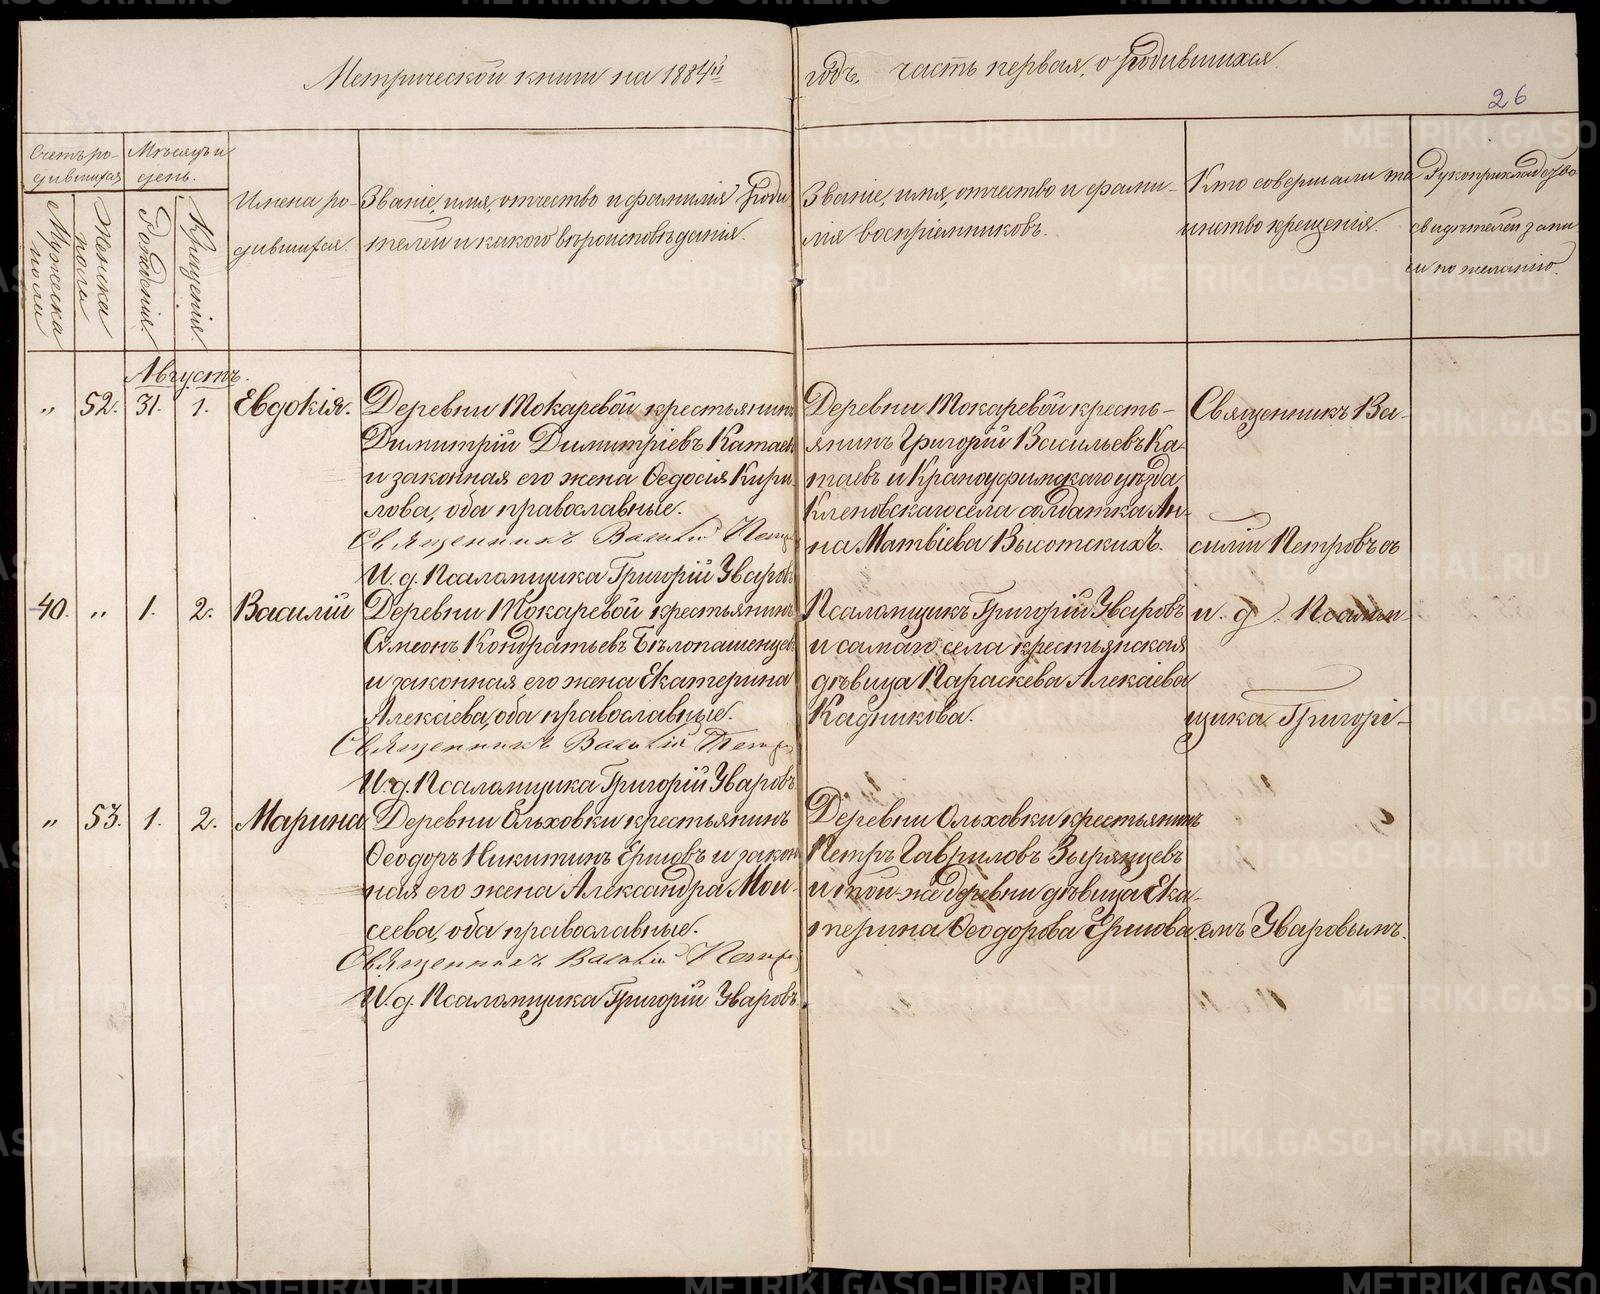 Метрической книги на 1884й годъ, часть первая, о родившихся
26
Счетъ ро-
дившихся
Мѣсяцъ и
день.
Мужска
полу
Женска
полу
Рожденія.
Крещенія.
Имена ро-
дившихся.
Званіе, имя, отчество и фамилія роди
телей и какого вѣроисповѣданія.
Званіе, имя, отчество и фами-
лія воспріемниковъ.
Кто совершали та
инство крещенія.
Рукоприкладство
свидѣтелей запи
си по желанію.
Августъ.
„ 52. 31. 1. Евдокія.
Деревни Токаревой крестьянинъ
Димитрій Димитріевъ Катаевъ
и законная его жена Ѳедосія Кири-
лова, оба православные.
Священникъ Василій Петр
И. д. Псаломщика Григорій Уваровъ
Деревни Токаревой кресть-
янинъ Григорій Васильевъ Ка-
таевъ и Красоуфимскаго уѣзда
Кленовскаго села солдатка Ан-
на Матвіева Высотскихъ.
Священникъ Ва-
силій Петровъ съ
40. „ 1. 2. Василій
Деревни Токаревой крестьянинъ
Симеонъ Кондратьевъ Бѣлопашенцевъ
и законная его жена Екатерина
Алексіева, оба православные.
Священникъ Василій Петр
И. д. Псаломщика Григорій Уваровъ
Псаломщикъ Григорій Уваровъ
и самаго села крестьянская
дѣвица Параскева Алексіева
Кадникова.
и. д. Псалом-
щика Григорі-
„ 53. 1. 2. Марина
Деревни Ольховки крестьянинъ
Ѳеодоръ Никитинъ Ершовъ и закон
ная его жена Александра Мои-
сеева, оба православные.
Священникъ Василій Петр
И. д. Псаломщика Григорій Уваровъ.
Деревни Ольховки крестьянинъ
Петръ Гавриловъ Зырянцевъ
и той-же деревни дѣвица Ека-
терина Ѳеодорова Ершова.
емъ Уваровымъ.
METRIKI.GASO-URAL.RU